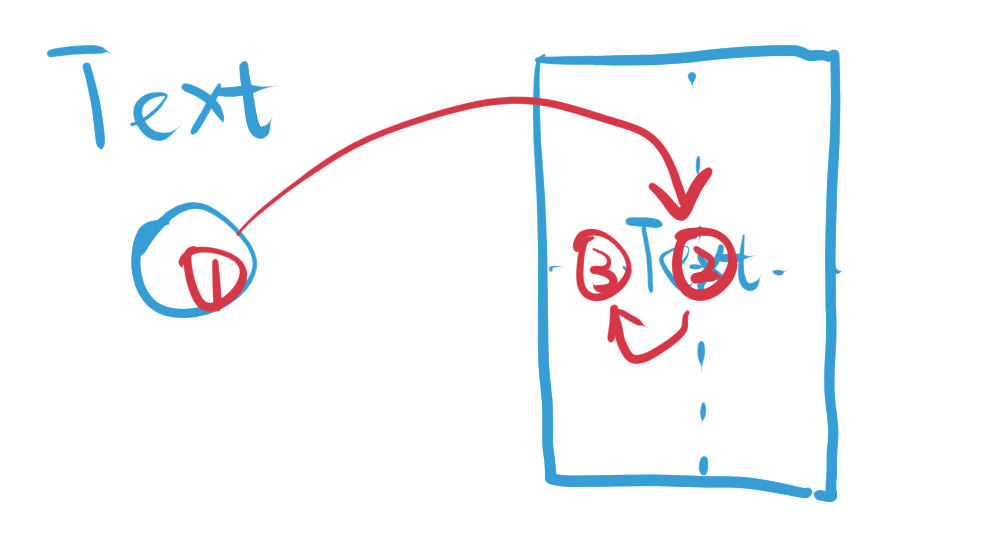 Text
① ③ Text ②